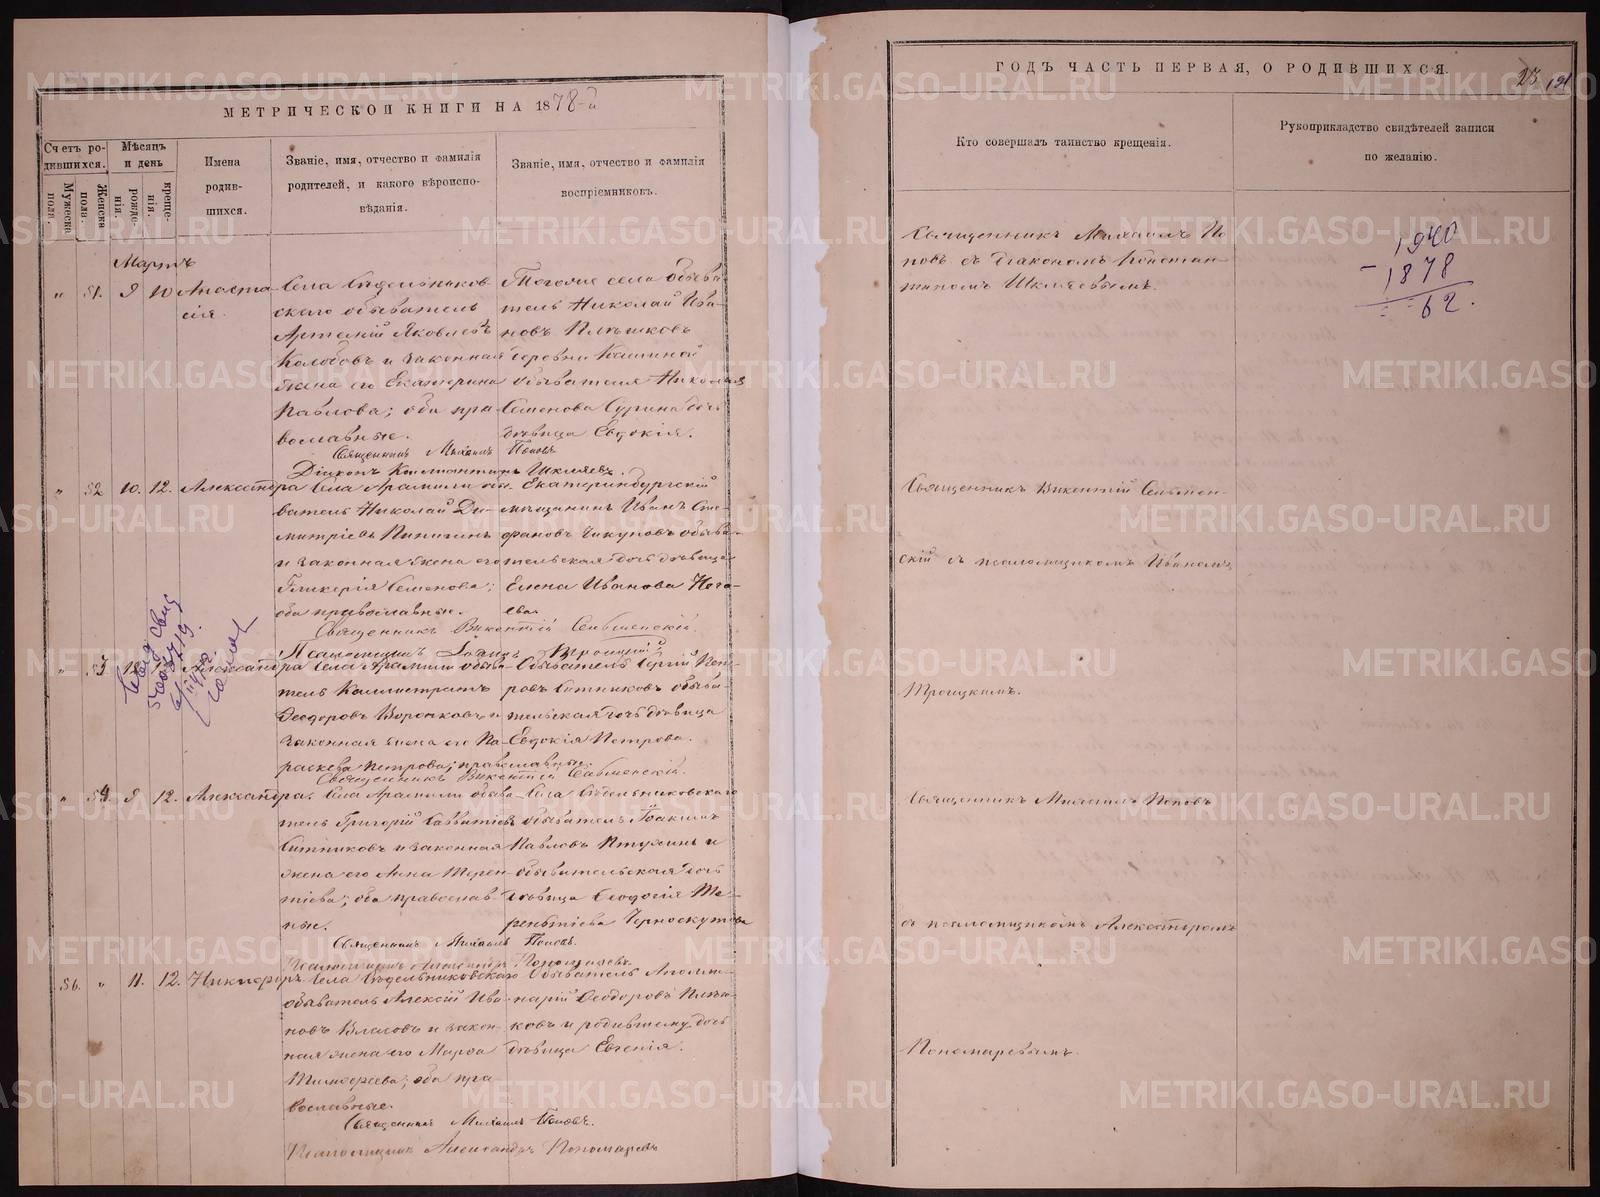 МЕТРИЧЕСКОЙ КНИГИ НА 1878-й
Счетъ ро-
дившихся.
Мужеска
пола.
Женска
пола.
Мѣсяцъ
и день
рожде-
нія.
креще-
нія.
Имена
родив-
шихся.
Званіе, имя, отчество и фамилія
родителей, и какого вѣроиспо-
вѣданія.
Званіе, имя, отчество и фамилія
воспріемниковъ.
Мартъ
" 51. 9 10 Анаста-
сія.
Села Сѣдельников-
скаго обыватель
Артемій Яковлевъ
Колобовъ и законная
жена его Екатерина
Павлова; оба пра-
вославные.
Тогоже села обыва-
тель Николай Ива-
новъ Плѣшковъ
деревни Кашиной
обывателя Николая
Семенова Сурина дочь
дѣвица Евдокія.
Священникъ Михаилъ Поповъ
Діаконъ Константинъ Шкляевъ.
" 52 10. 12. Александра
Села Арамили обы-
ватель Николай Ди-
митріевъ Пинигинъ
и законная жена его
Гликерія Семенова;
оба православные.
Екатеринбургскій
мѣщанинъ Иванъ Сте-
фановъ Чикуновъ обыва-
тельская дочь дѣвица
Елена Иванова
Священникъ Викентій
Псаломщикъ Іоаннъ Троицкій
" 53 Александра
Села Арамили обыва-
тель Каллистратъ
Ѳеодоровъ Воронковъ и
законная жена его Па-
раскева Петрова; православные.
Обыватель Сергій Пет-
ровъ Ситниковъ обыва-
тельская дочь дѣвица
Евдокія Петрова.
Священникъ Викентій
" 54. 9 12. Александра.
Села Арамили обыва-
тель Григорій Савватіевъ
Ситниковъ и законная
жена его Анна Терен-
тіева; оба православ-
ные.
Села Сѣдельниковскаго
обыватель Іоакимъ
Павловъ Птухинъ и
обывательская дочь
дѣвица Ѳеодосія Те-
рентіева Черноскутова
Священникъ Михаилъ Поповъ.
Псаломщикъ Александръ Пономаревъ
56. " 11. 12. Никифоръ
Села Сѣдельниковскаго
обыватель Алексій Ива-
новъ Власовъ и закон-
ная жена его Марѳа
Тимоѳеева; оба пра-
вославные.
Обыватель Аполли-
нарій Ѳеодоровъ
и родившему дочь
дѣвица Евгенія.
Священникъ Михаилъ Поповъ.
Псаломщикъ Александръ Пономаревъ
ГОДЪ ЧАСТЬ ПЕРВАЯ, О РОДИВШИХСЯ.
23
Кто совершалъ таинство крещенія.
Рукоприкладство свидѣтелей записи
по желанію.
Священникъ Михаилъ По-
повъ съ діакономъ Констан-
тиномъ Шкляевымъ.
1940
- 1878
62.
Священникъ Викентій
скій съ псаломщикомъ Иваномъ
Троицкимъ.
Священникъ Михаилъ Поповъ
съ псаломщикомъ Александромъ
Пономаревымъ.
METRIKI.GASO-URAL.RU